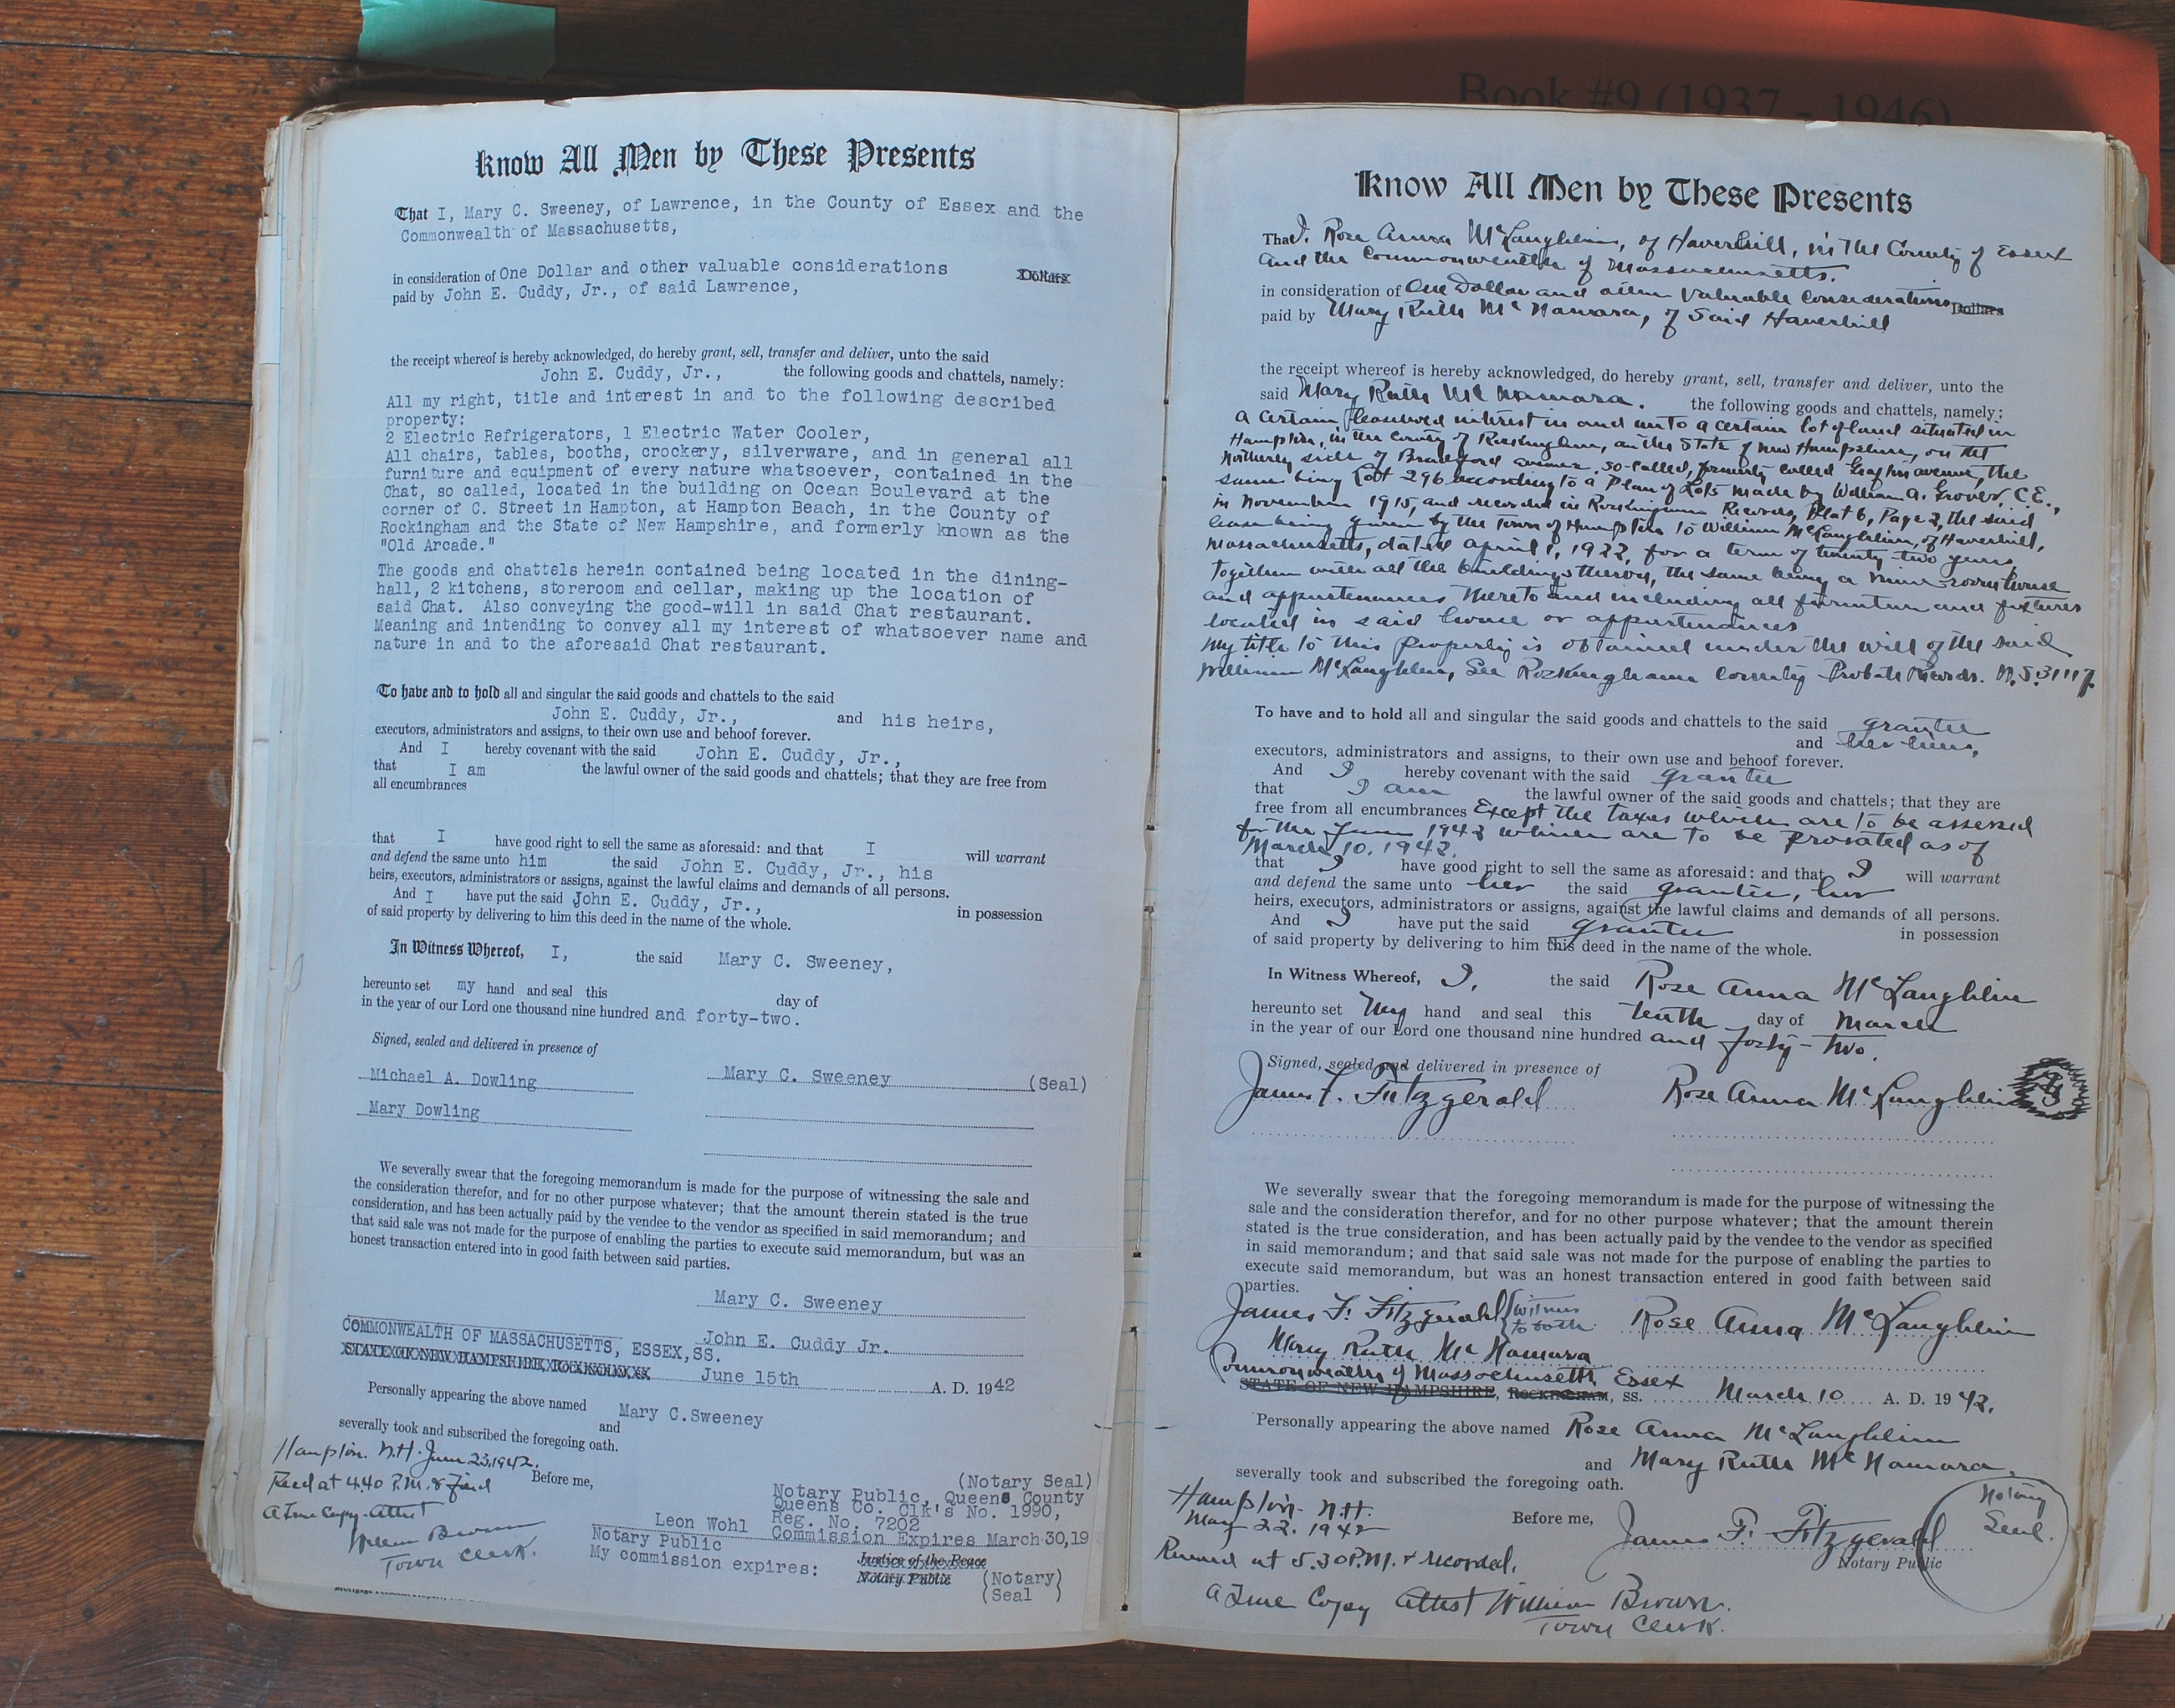 Book #9 (1937 - 1946)
Know All Men by These Presents
That I, Mary C. Sweeney, of Lawrence, in the County of Essex and the
Commonwealth of Massachusetts,
in consideration of One Dollar and other valuable considerations Dollars
paid by John E. Cuddy, Jr., of said Lawrence,
the receipt whereof is hereby acknowledged, do hereby grant, sell, transfer and deliver, unto the said
John E. Cuddy, Jr., the following goods and chattels, namely:
All my right, title and interest in and to the following described
property:
2 Electric Refrigerators, 1 Electric Water Cooler,
All chairs, tables, booths, crockery, silverware, and in general all
furniture and equipment of every nature whatsoever, contained in the
Chat, so called, located in the building on Ocean Boulevard at the
corner of C. Street in Hampton, at Hampton Beach, in the County of
Rockingham and the State of New Hampshire, and formerly known as the
"Old Arcade."
The goods and chattels herein contained being located in the dining-
hall, 2 kitchens, storeroom and cellar, making up the location of
said Chat. Also conveying the good-will in said Chat restaurant.
Meaning and intending to convey all my interest of whatsoever name and
nature in and to the aforesaid Chat restaurant.
To have and to hold all and singular the said goods and chattels to the said
John E. Cuddy, Jr., and his heirs,
executors, administrators and assigns, to their own use and behoof forever.
And I hereby covenant with the said John E. Cuddy, Jr.,
that I am the lawful owner of the said goods and chattels; that they are free from
all encumbrances
that I have good right to sell the same as aforesaid: and that I will warrant
and defend the same unto him the said John E. Cuddy, Jr., his
heirs, executors, administrators or assigns, against the lawful claims and demands of all persons.
And I have put the said John E. Cuddy, Jr., in possession
of said property by delivering to him this deed in the name of the whole.
In Witness Whereof, I, the said Mary C. Sweeney,
hereunto set my hand and seal this day of
in the year of our Lord one thousand nine hundred and forty-two.
Signed, sealed and delivered in presence of
Michael A. Dowling Mary C. Sweeney (Seal)
Mary Dowling
We severally swear that the foregoing memorandum is made for the purpose of witnessing the sale and
the consideration therefor, and for no other purpose whatever; that the amount therein stated is the true
consideration, and has been actually paid by the vendee to the vendor as specified in said memorandum; and
that said sale was not made for the purpose of enabling the parties to execute said memorandum, but was an
honest transaction entered into in good faith between said parties.
Mary C. Sweeney
John E. Cuddy Jr.
COMMONWEALTH OF MASSACHUSETTS, ESSEX,SS.
STATE OF NEW HAMPSHIRE, ROCKINGHAM, June 15th A. D. 1942
Personally appearing the above named Mary C.Sweeney
and
severally took and subscribed the foregoing oath.
Hampton. N.H. June 23,1942.
Recd at 4.40 P.M. & Filed Before me,
A True Copy-Attest
William Brown
Town Clerk.
(Notary Seal)
Notary Public, Queens County
Queens Co. Clk's No. 1990,
Leon Wohl Reg. No. 7202
Notary Public Commission Expires March 30,19
My commission expires: Justice of the Peace
Notary Public (Notary)
(Seal )
Know All Men by These Presents
That I, Rose Anna McLaughlin, of Haverhill, in the County of Essex
and the Commonwealth of Massachusetts.
in consideration of One Dollar and other valuable considerations Dollars
paid by Mary Ruth McNamara, of said Haverhill
the receipt whereof is hereby acknowledged, do hereby grant, sell, transfer and deliver, unto the
said Mary Ruth McNamara. the following goods and chattels, namely:
a certain leasehold interest in and unto a certain lot of land situated in
Hampton, in the County of Rockingham, and the State of New Hampshire, on the
Northerly side of Bradford avenue, so-called, formerly called avenue, the
same being Lot 296 according to a Plan of Lots made by William A. Grover, C.E.,
in November 1915, and recorded in Rockingham Records, Plat 6, Page 2, the said
lease being given by the town of Hampton to William McLaughlin, of Haverhill,
Massachusetts, dated April 1, 1922, for a term of twenty two years,
together with all the buildings thereon, the same being a nine-room house
and appurtenances thereto and including all furniture and fixtures
located in said house or appurtenances
my title to this property is obtained under the will of the said
William McLaughlin, See Rockingham County Probate Records. N.
To have and to hold all and singular the said goods and chattels to the said grantee
and her heirs,
executors, administrators and assigns, to their own use and behoof forever.
And I hereby covenant with the said grantee
that I am the lawful owner of the said goods and chattels; that they are
free from all encumbrances Except the taxes which are to be assessed
for the 1942 which are to be prorated as of
March 10, 1942.
that I have good right to sell the same as aforesaid: and that I will warrant
and defend the same unto her the said grantee, her
heirs, executors, administrators or assigns, against the lawful claims and demands of all persons.
And I have put the said grantee in possession
of said property by delivering to him this deed in the name of the whole.
In Witness Whereof, I, the said Rose Anna McLaughlin
hereunto set my hand and seal this tenth day of March
in the year of our Lord one thousand nine hundred and forty-two.
Signed, sealed and delivered in presence of
James F. Fitzgerald Rose Anna McLaughlin
We severally swear that the foregoing memorandum is made for the purpose of witnessing the
sale and the consideration therefor, and for no other purpose whatever; that the amount therein
stated is the true consideration, and has been actually paid by the vendee to the vendor as specified
in said memorandum; and that said sale was not made for the purpose of enabling the parties to
execute said memorandum, but was an honest transaction entered in good faith between said
parties.
James F. Fitzgerald witness to both Rose Anna McLaughlin
Mary Ruth McNamara
Commonwealth of Massachusetts Essex
STATE OF NEW HAMPSHIRE, ROCKINGHAM, SS. March 10 A. D. 1942.
Personally appearing the above named Rose Anna McLaughlin
and Mary Ruth McNamara.
severally took and subscribed the foregoing oath.
Hampton- N.H.
May 22. 1942 Before me, James F. Fitzgerald
Notary Public
Notary Seal.
Received at 5.30 P.M. & recorded.
A True Copy Attest William Brown.
Town Clerk.